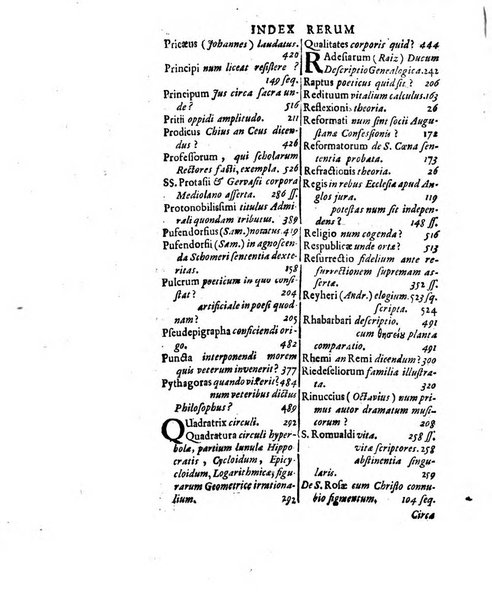 INDEX RERUM
Pricæus (Johannes) laudatus.
420
Principi num liceat resistere ?
149 seq.
Principum Jus circa sacra un-
de ? 516
Pritii oppidi amplitudo. 211
Prodicus Chius an Ceus dicen-
dus ? 426
Professorum, qui scholarum
Rectores facti, exempla. 526
SS. Protasii & Gervasii corpora
Mediolano asserta. 286 ss.
Protonobilissimi titulus Admi-
rali quondam tributus. 389
Pufendorfius (Sam.) notatus 419
Pufendorfii (Sam.) in agnoscen-
da Schomeri sententia dexte-
ritas. 158
Pulcrum poeticum in quo consi-
stat ? 204
artificiale in poesi quod-
nam ? 205
Pseudepigrapha conficiendi ori-
go. 482
Puncta interponendi morem
quis veterum invenit ? 377
Pythagoras quando vixerit ? 484
num veteribus dictus
Philosophus ? 489
Quadratrix circuli. 292
Quadratura circuli hyper-
bolæ, partium lunulæ Hippo
cratis, Cycloidum, Epicy-
cloidum, Logarithmicæ, figu-
rarum Geometrice irrationa-
lium. 292
Qualitates corporis quid ? 444
Radesiarum (Raiz) Ducum
Descriptio Genealogica. 242
Raptus poeticus quid sit ? 206
Redituum vitalium calculus. 163
Reflexionis theoria. 26
Reformati num sint socii Augu-
stanæ Confessionis ? 172
Reformatorum de S. Cœna sen-
tentia probata. 173
Refractionis theoria. 26
Regis in rebus Ecclesiæ apud An-
glos jura. 119
potestas num sit indepen-
dens ? 148 ss.
Religio num cogenda ? 516
Respublicæ unde ortæ ? 513
Resurrectio fidelium ante re-
surrectionem supremam as-
serta. 352 ss.
Reyheri (Andr.) elogium. 523 sq.
scripta. 524
Rhabarbari descriptio. 491
cum θησείῳ planta
comparatio. 491
Rhemi an Remi dicendum ? 300
Riedeseliorum familia illustra-
ta. 320
Rinuccius (Octavius) num pri-
mus autor dramatum musi-
corum ? 208
S. Romualdi vita. 258 ss.
vitæ scriptores. 258
abstinentia singu-
laris. 259
De S. Rosæ cum Christo connu-
bio figmentum. 104 seq.
Circa